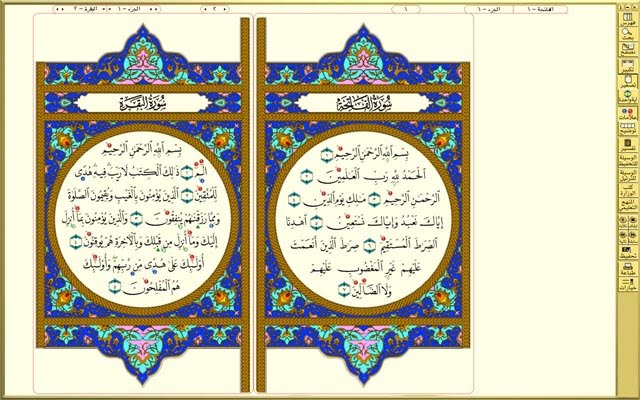 الفاتحة - ١
الجزء - ١
١
٢
الجزء - ١
البقرة - ٢
سُورَةُ الْفَاتِحَةِ
بِسْمِ اللَّهِ الرَّحْمَٰنِ الرَّحِيمِ ١
الْحَمْدُ لِلَّهِ رَبِّ الْعَٰلَمِينَ ٢
الرَّحْمَٰنِ الرَّحِيمِ ٣ مَٰلِكِ يَوْمِ الدِّينِ ٤
إِيَّاكَ نَعْبُدُ وَإِيَّاكَ نَسْتَعِينُ ٥ اهْدِنَا
الصِّرَٰطَ الْمُسْتَقِيمَ ٦ صِرَٰطَ الَّذِينَ أَنْعَمْتَ
عَلَيْهِمْ غَيْرِ الْمَغْضُوبِ عَلَيْهِمْ
وَلَا الضَّالِّينَ ٧
سُورَةُ الْبَقَرَةِ
بِسْمِ اللَّهِ الرَّحْمَٰنِ الرَّحِيمِ
الٓمٓ ١ ذَٰلِكَ الْكِتَٰبُ لَا رَيْبَ فِيهِ هُدًى
لِّلْمُتَّقِينَ ٢ الَّذِينَ يُؤْمِنُونَ بِالْغَيْبِ وَيُقِيمُونَ الصَّلَوٰةَ
وَمِمَّا رَزَقْنَٰهُمْ يُنفِقُونَ ٣ وَالَّذِينَ يُؤْمِنُونَ بِمَا أُنزِلَ
إِلَيْكَ وَمَا أُنزِلَ مِن قَبْلِكَ وَبِالْآخِرَةِ هُمْ يُوقِنُونَ ٤
أُولَٰئِكَ عَلَىٰ هُدًى مِّن رَّبِّهِمْ وَأُولَٰئِكَ
هُمُ الْمُفْلِحُونَ ٥
فهرس
بحث
تصفح
تكبير
تصغير
علامات
توضيح
تفسير
الوسيلة
للتحفيظ
الوسيلة
للترتيل
كتب
الوزارة
المنهج
التعليمي
تحفيظ
طباعة
خيارات